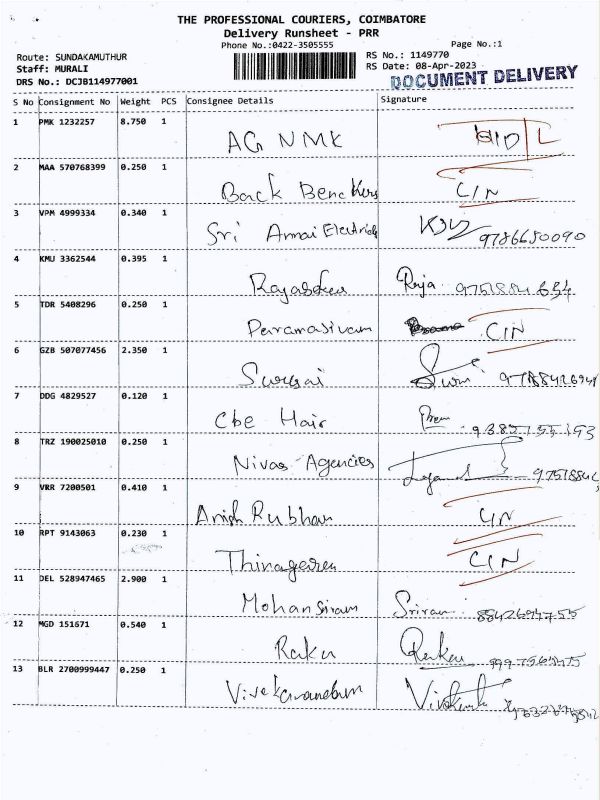 THE PROFESSIONAL COURIERS, COIMBATORE
Delivery Runsheet - PRR
Phone No.:0422-3505555 Page No.:1
Route: SUNDAKAMUTHUR RS No.: 1149770
Staff: MURALI RS Date: 08-Apr-2023
DRS No.: DCJB114977001 DOCUMENT DELIVERY
S No Consignment No Weight PCS Consignee Details Signature
1 PMK 1232257 8.750 1 AG NMK
2 MAA 570768399 0.250 1 Back Benckers CIN
3 VPM 4999334 0.340 1 Sri Annai Electricals 9786650090
4 KMU 3362544 0.395 1 Rajasekar Raja
5 TDR 5408296 0.250 1 Paramasivam CIN
6 GZB 507077456 2.350 1
7 DDG 4829527 0.120 1 Cbe Hair
8 TRZ 190025010 0.250 1 Nivas Agencies
9 VRR 7200501 0.410 1
10 RPT 9143063 0.230 1 CIN
11 DEL 528947465 2.900 1 Mohansriram Sriram 8842694755
12 MGD 151671 0.540 1
13 BLR 2700999447 0.250 1